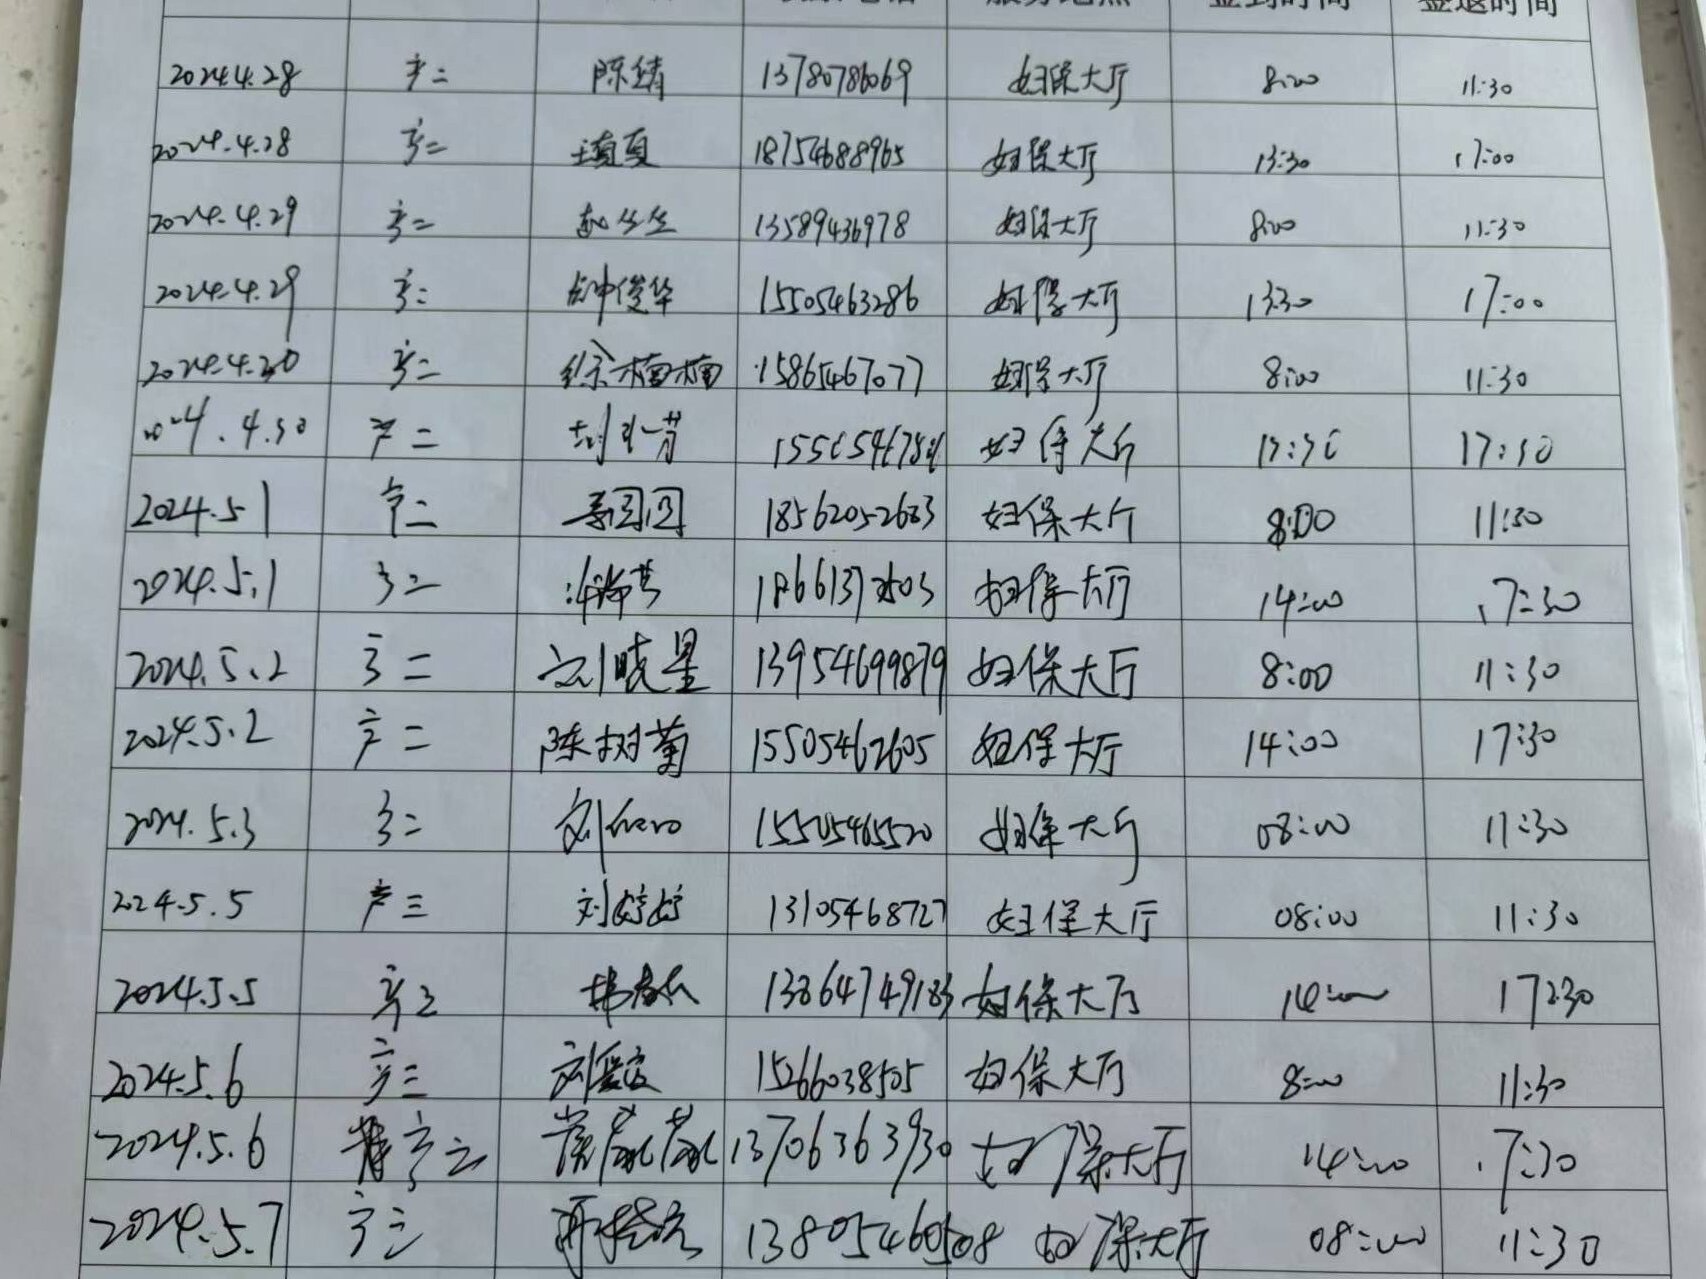 服务地点 签到时间 签退时间
2024.4.28 产二 陈绪 13780786069 妇保大厅 8:00 11:30
2024.4.28 产二 18754688965 妇保大厅 13:30 17:00
2024.4.29 产二 赵丝丝 13589436978 妇保大厅 8:00 11:30
2024.4.29 产二 钟俊华 15505463286 妇保大厅 13:30 17:00
2024.4.30 产二 徐楠楠 15865467077 妇保大厅 8:00 11:30
2024.4.30 产二 妇保大厅 13:30 17:30
2024.5.1 产二 18562052683 妇保大厅 8:00 11:30
2024.5.1 产二 妇保大厅 14:00 17:30
2024.5.2 产二 刘晓星 13954699879 妇保大厅 8:00 11:30
2024.5.2 产二 陈树菊 15505462605 妇保大厅 14:00 17:30
2024.5.3 产二 15505465520 妇保大厅 08:00 11:30
2024.5.5 产三 刘婷婷 13105468727 妇保大厅 08:00 11:30
2024.5.5 产三 13864749183 妇保大厅 14:00 17:30
2024.5.6 产三 15266038505 妇保大厅 8:00 11:30
2024.5.6 产三 13706363930 妇保大厅 14:00 17:30
2024.5.7 产三 13805460508 妇保大厅 08:00 11:30